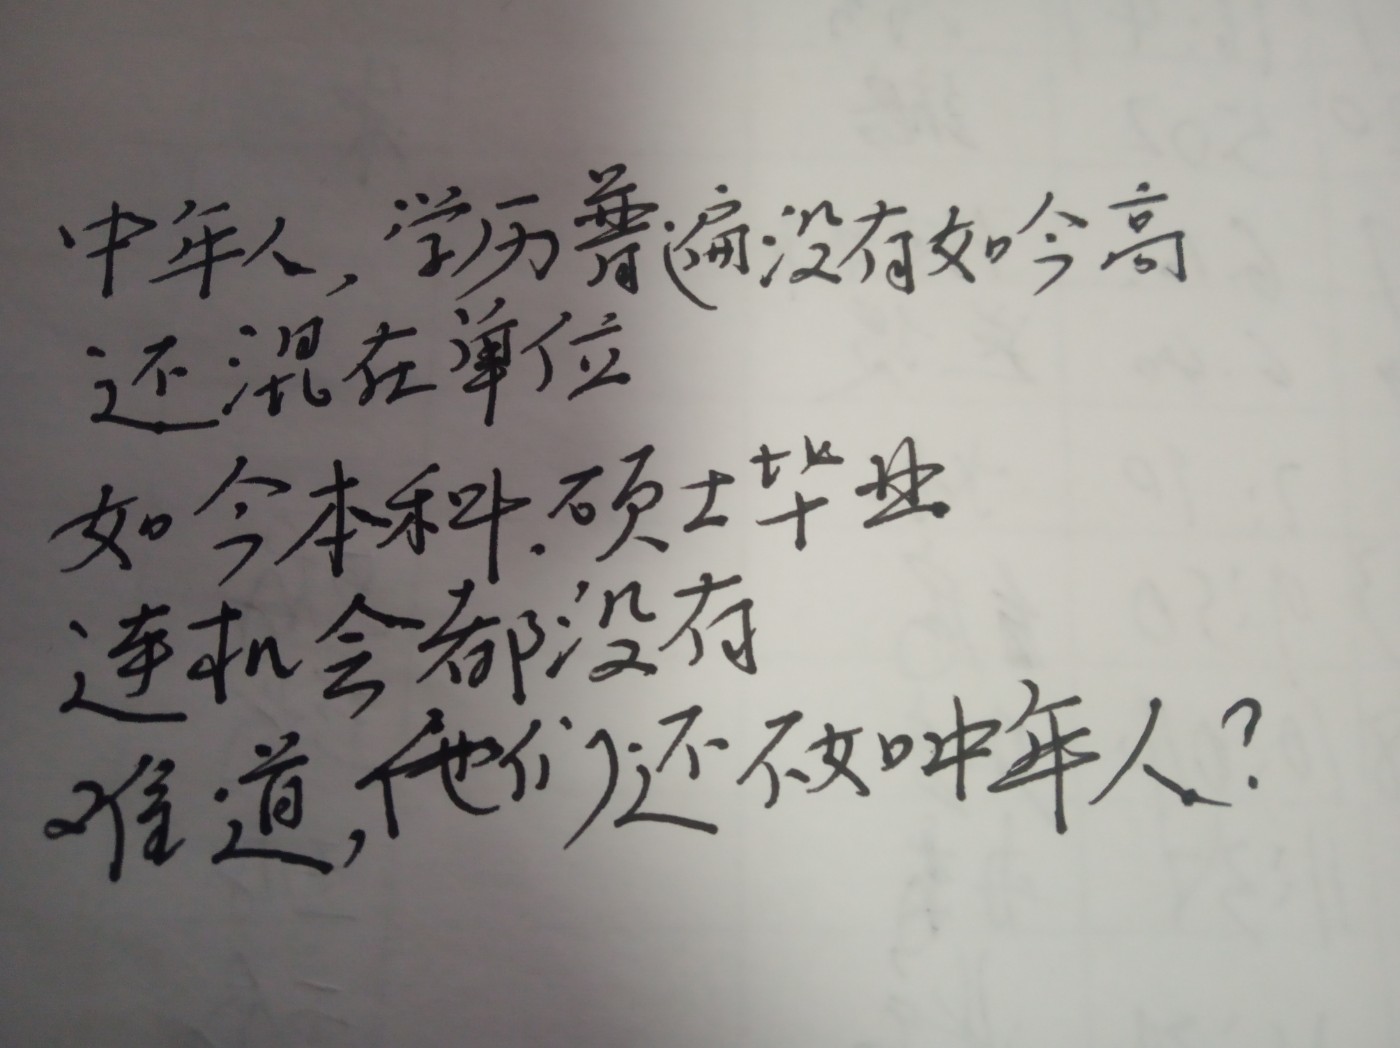 中年人,学历普遍没有如今高
还混在单位
如今本科.硕士毕业
连机会都没有
难道,他们还不如中年人?